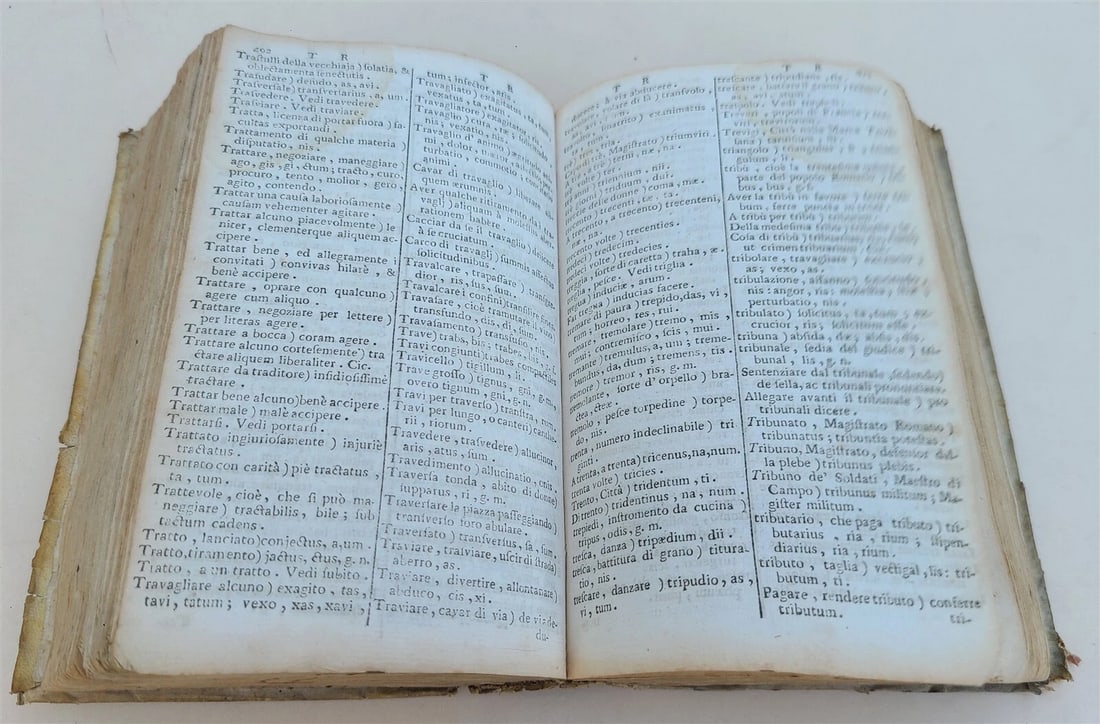 T R
Trastulli della vecchiaja ) solatia, &
oblectamenta senectutis.
Trasudare ) desudo, as, avi.
Trasversale) transversarius, a, um.
Trasvedere. Vedi travedere.
Trasviare. Vedi traviare.
Tratta, licenza di portar fuora ) fa-
cultas exportandi.
Trattamento di qualche materia )
disputatio, nis.
Trattare, negoziare, maneggiare)
ago, gis, gi, ctum; tracto, curo,
procuro, tento, molior, gero,
agito, contendo.
Trattar una causa laboriosamente )
causam vehementer agitare.
Trattar alcuno piacevolmente ) le
niter, clementerque aliquem ac-
cipere.
Trattar bene, ed allegramente i
convitati ) convivas hilarè, &
benè accipere.
Trattare, oprare con qualcuno )
agere cum aliquo.
Trattare, negoziare per lettere )
per literas agere.
Trattare a bocca) coram agere.
Trattare alcuno cortesemente) tra
ctare aliquem liberaliter. Cic.
Trattare da traditore) insidiosissimè
tractare.
Trattar bene alcuno) benè accipere.
Trattar male ) malè accipere.
Trattarsi. Vedi portarsi.
Trattato ingiuriosamente ) injuriè
tractatus.
Trattato con carità) piè tractatus,
ta, tum.
Trattevole, cioè, che si può ma-
neggiare) tractabilis, bile; sub
tactum cadens.
Tratto, lanciato) conjectus, a, um.
Tratto, tiramento) jactus, ctus, g. m.
Tratto, a un tratto. Vedi subito.
Travagliare alcuno) exagito, tas,
tavi, tatum; vexo, xas, xavi,
T R
tum; infector, aris.
Travagliato) exagitatus, ta, tum,
vexatus, ta, tum.
Travagliatore) exagitator,
Travaglio) cura,
nis; vexatio, nis.
Travaglio di animo)
mi, dolor,
turbatio, commotio,
animi.
Cavar di travaglio ) liberare ali-
quem ærumnis.
Aver qualche ritiramento da'
vagli ) aliquam à molestiis
rationem habere.
Cacciar da se il travaglio ) deicere
à se cruciatum.
Carco di travagli ) summis affectus
solicitudinibus.
Travalcare, trapassare ) transgre-
dior, ris, sus, sum.
Travalcar i confini) transilire
Travasare, cioè tramutare
transfundo, dis, di,
Travasamento ) transfusio, nis.
Trave) trabs, bis; trabes, bis,
Travi congiunti) trabes compactiles
Travicello ) tigillum, li.
Trave grosso ) tignus, gni, g. m.
overo tignum, gni, g. n.
Travi per traverso) transtra,
Travi per lungo, o canteri) canthe-
rii, riorum.
Travedere, trasvedere) allucinor,
aris, atus, sum.
Travedimento) allucinatio, onis.
Traversa tonda, abito di donne)
supparus, ri, g. m.
Traversare la piazza passeggiando )
transverso foro abulare.
Traversato ) transversus, sa, sum.
Traviare, trasviare, uscir di strada)
aberro, as.
Traviare, divertire, allontanare)
abduco, cis, xi.
Traviare, cavar di via) de via de-
du-
T R
ducere; à via abducere.
examinatus,
Magistrato ) triumviri.
term, næ, na.
ter.
triennium, nii.
triduum, dui.
delle donne) coma, mæ.
trecenti, tæ.
a trecento) trecenteni,
næ, na.
volte ) trecenties.
tredecim.
volte ) tredecies.
sorte di caretta) traha, æ.
pesce. Vedi triglia.
induciæ, arum.
Far tregua ) inducias facere.
Tremare di paura ) trepido, das, vi,
tum; horreo, res, rui.
Tremare, tremolare) tremo, mis,
mui; contremisco, cis, mui.
tremante) tremulus, a, um; treme-
bundus, da, dum; tremens, tis.
tremore) tremor, ris, g. m.
tremolante, sorte d'orpello ) bra-
ctea, cteæ.
tremolo, pesce torpedine ) torpe-
do, nis.
trenta, numero indeclinabile ) tri
ginti.
A trenta, a trenta) tricenus, na, num.
trenta volte) tricies.
Trento, Città) tridentum, ti.
Di trento) tridentinus, na, num.
trepiedi, instromento da cucina )
tripus, odis, g. m.
tresca, danza) tripædium, dii.
tresca, battitura di grano) titura-
tio, nis.
trescare, danzare) tripudio, as,
vi, tum.
T R
trescante ) tripudians, tis.
trescare, battere il grano)
as, avi, atum.
trepolo. Vedi
Treveri, popoli di Francia)
viri,
Trevigi, Città nella Marca
triangolo ) triangulus,
gulum, li.
tribù, cioè la
parte del popolo Romano)
bus, bus, g. f.
Aver la tribù in favore)
bum, ferre
A tribù per tribù) tributim.
Della medesima tribù)
Cosa di tribù) tribuarius,
ut crimen tribuarium.
tribolare, travagliare)
as; vexo, as.
tribulazione, affanno)
nis: angor, ris:
perturbatio, nis.
tribulato) solicitus, ta, tum;
crucior, ris; solicitum esse.
tribuna) absida, dæ; absis, dis.
tribunale, sedia del giudice ) tri-
bunal, lis, g. n.
Sentenziare dal tribunale, sedendo)
de sella, ac tribunali pronunciare.
Allegare avanti il tribunale ) pro
tribunali dicere.
Tribunato, Magistrato Romano)
tribunatus; tribuntia potestas.
Tribuno, Magistrato, defensor del-
la plebe ) tribunus plebis.
Tribuno de' Soldati, Maestro di
Campo) tribunus militum; Ma-
gister militum.
tributario, che paga tributo) tri-
butarius, ria, rium; stipen-
diarius, ria, rium.
tributo, taglia) vectigal, lis: tri-
butum, ti.
Pagare, rendere tributo) conferre
tributum.
tri-